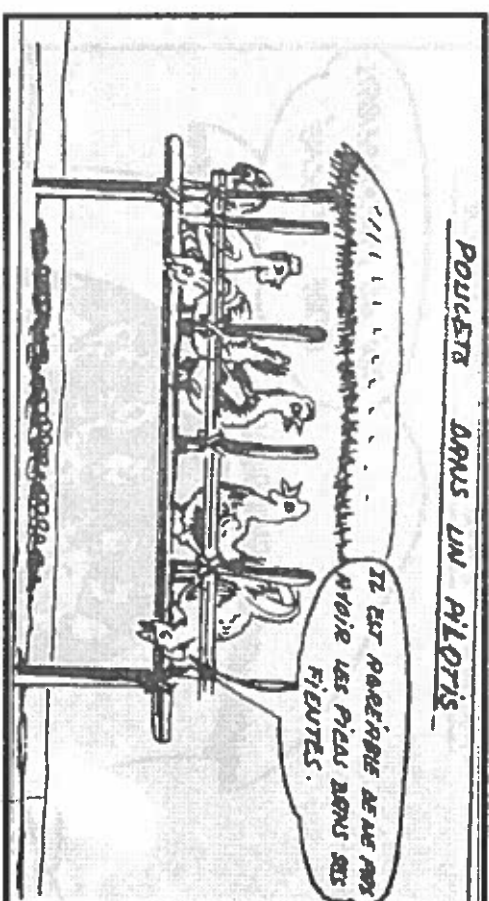 POULETS DANS UN PILOTIS
IL EST AGREABLE DE NE PAS
AVOIR LES PIEDS DANS SES
FIENTES.